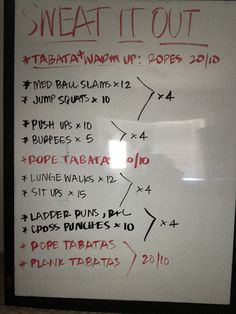 SWEAT IT OUT
* TABATA+ WARM UP: ROPES 20/10
* MED BALL SLAMS x 12
* JUMP SQUATS x 10
> x 4
* PUSH UPS x 10
* BURPEES x 5
> x 4
* ROPE TABATAS 20/10
* LUNGE WALKS x 12
* SIT UPS x 15
> x 4
* LADDER RUNS, R+L
* CROSS PUNCHES x 10
> x 4
* ROPE TABATAS
* PLANK TABATAS
> 20/10